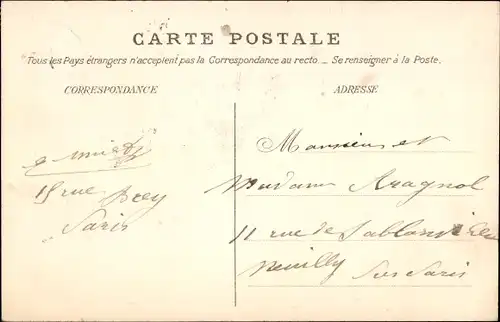 CARTE POSTALE
Tous les Pays étrangers n'acceptent pas la Correspondance au recto _ Se renseigner à la Poste.
CORRESPONDANCE
ADRESSE
15 rue Drey
Paris
Monsieur et
Madame Aragnol
11 rue de Sablonville
Neuilly Sur Paris